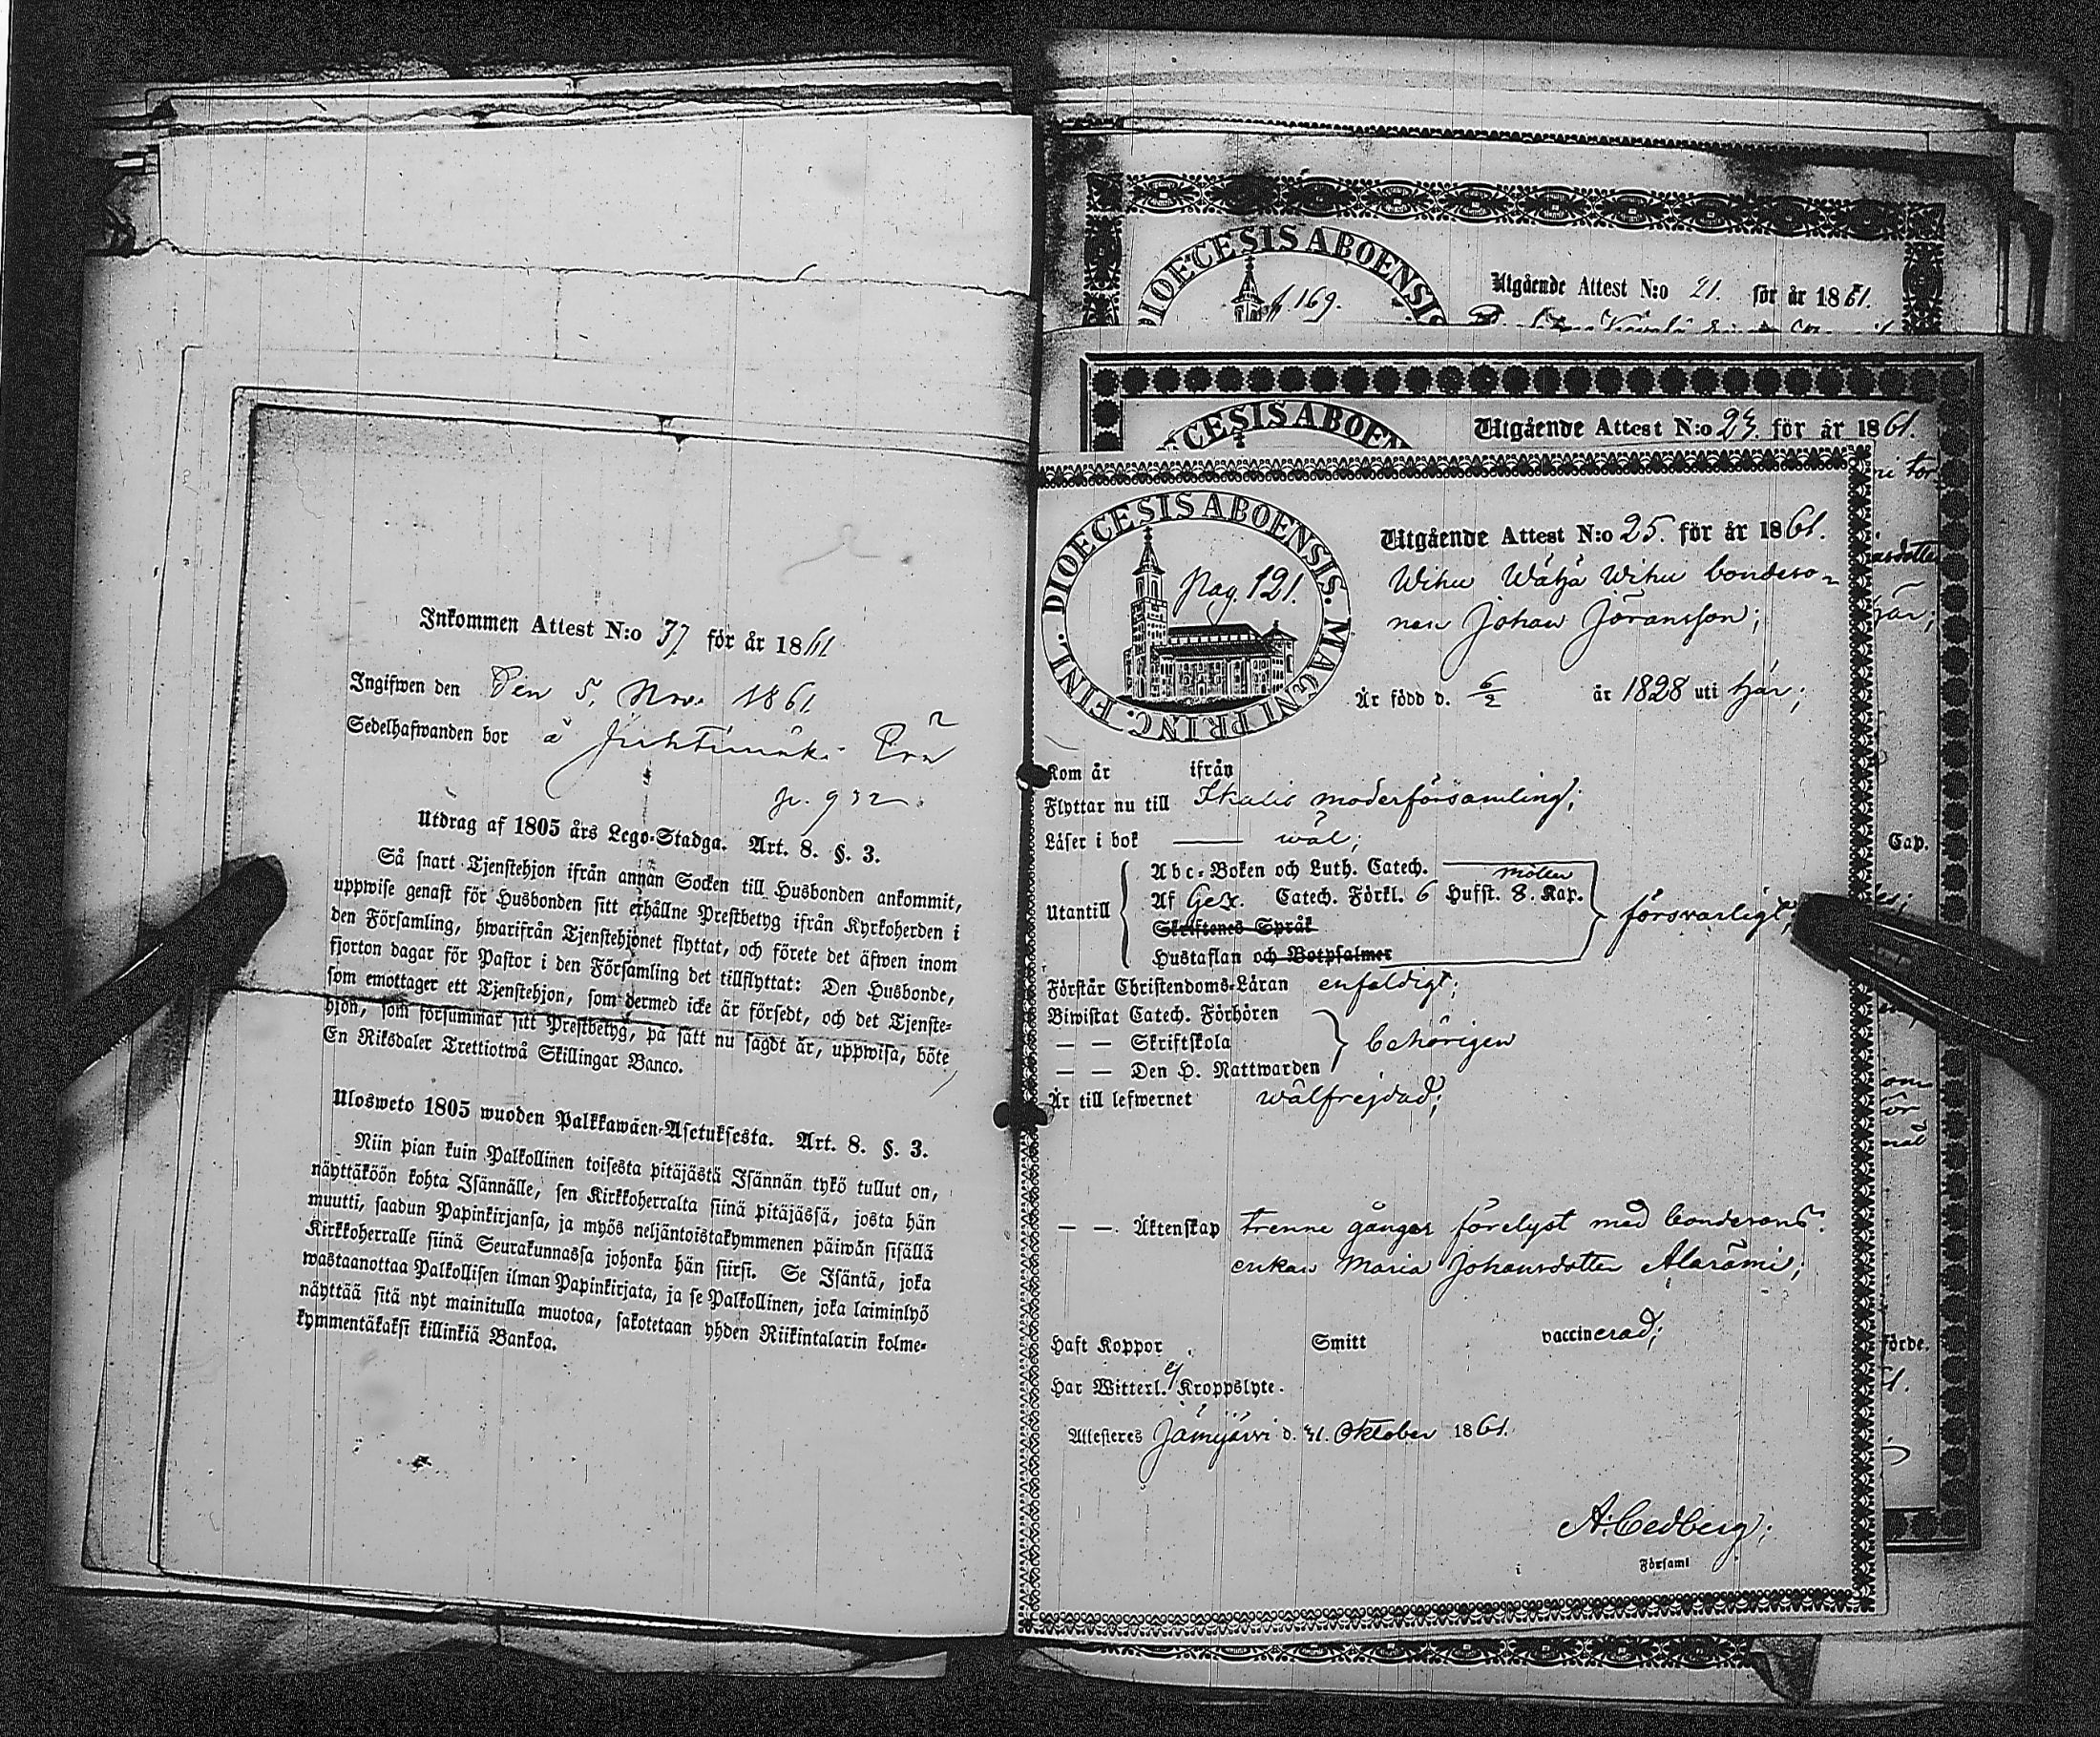 Inkommen Attest N:o 37. för år 1861
Ingifwen den Den 5. Nov. 1861
Sedelhafwanden bor å
p. 932
Utdrag af 1805 års Lego-Stadga. Art. 8. §. 3.
Så snart Tjenstehjon ifrån annan Socken till Husbonden ankommit,
uppwise genast för Husbonden sitt erhållne Prestbetyg ifrån Kyrkoherden i
den Församling, hwarifrån Tjenstehjonet flyttat, och förete det äfwen inom
fjorton dagar för Pastor i den Församling det tillflyttat: Den Husbonde,
som emottager ett Tjenstehjon, som dermed icke är försedt, och det Tjenste-
hjon, som försummar sitt Prestbetyg, på sätt nu sagdt är, uppwisa, böte
En Riksdaler Trettiotwå Skillingar Banco.
Ulosweto 1805 wuoden Palkkawäen-Asetuksesta. Art. 8. §. 3.
Niin pian kuin Palkollinen toisesta pitäjästä Isännän tykö tullut on,
näyttäköön kohta Isännälle, sen Kirkkoherralta siinä pitäjässä, josta hän
muutti, saadun Papinkirjansa, ja myös neljäntoistakymmenen päiwän sisällä
Kirkkoherralle siinä Seurakunnassa johonka hän siirsi. Se Isäntä, joka
wastaanottaa Palkollisen ilman Papinkirjata, ja se Palkollinen, joka laiminlyö
näyttää sitä nyt mainitulla muotoa, sakotetaan yhden Riikintalarin kolme-
kymmentäkaksi killinkiä Bankoa.
DIOECESIS ABOENSIS
p. 169.
Utgående Attest N:o 21. för år 1861.
CESIS ABOEN
Utgående Attest N:o 23. för år 1861.
DIOECESIS ABOENSIS. MAGNI PRINC. FINL.
Pag. 121.
Utgående Attest N:o 25. för år 1861.
Wihu Wähä Wihu bondeso-
nen Johan Jöransson;
Är född d. 6/2 år 1828 uti här;
Kom år ifrån
Flyttar nu till Ikalis moderförsamling;
Läser i bok — wäl;
Utantill
Abc-Boken och Luth. Catech.
Af Catech. Förkl. 6 Hufst. 8. Kap.
Skriftenes Språk
Hustaflan och Botpsalmer
försvarligt;
Förstår Christendoms-Läran enfaldigt;
Biwistat Catech. Förhören
— — Skriftskola
— — Den H. Nattwarden
behörigen
Är till lefwernet wälfrejdad;
— — Äktenskap trenne gånger förelyst med bondesons-
enkan Maria Johansdotter Alarämi;
Haft Koppor Smitt vaccinerad;
Har Witterl. ej Kroppslyte.
Attesteres Jämijärwi d. 31. Oktober 1861.
A. Cedberg;
i Församl
Cap.